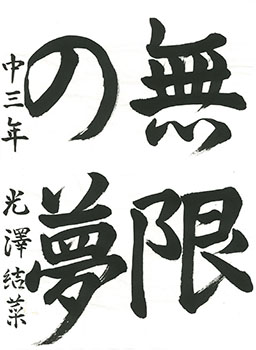 無限
の夢
中三年 光澤結菜